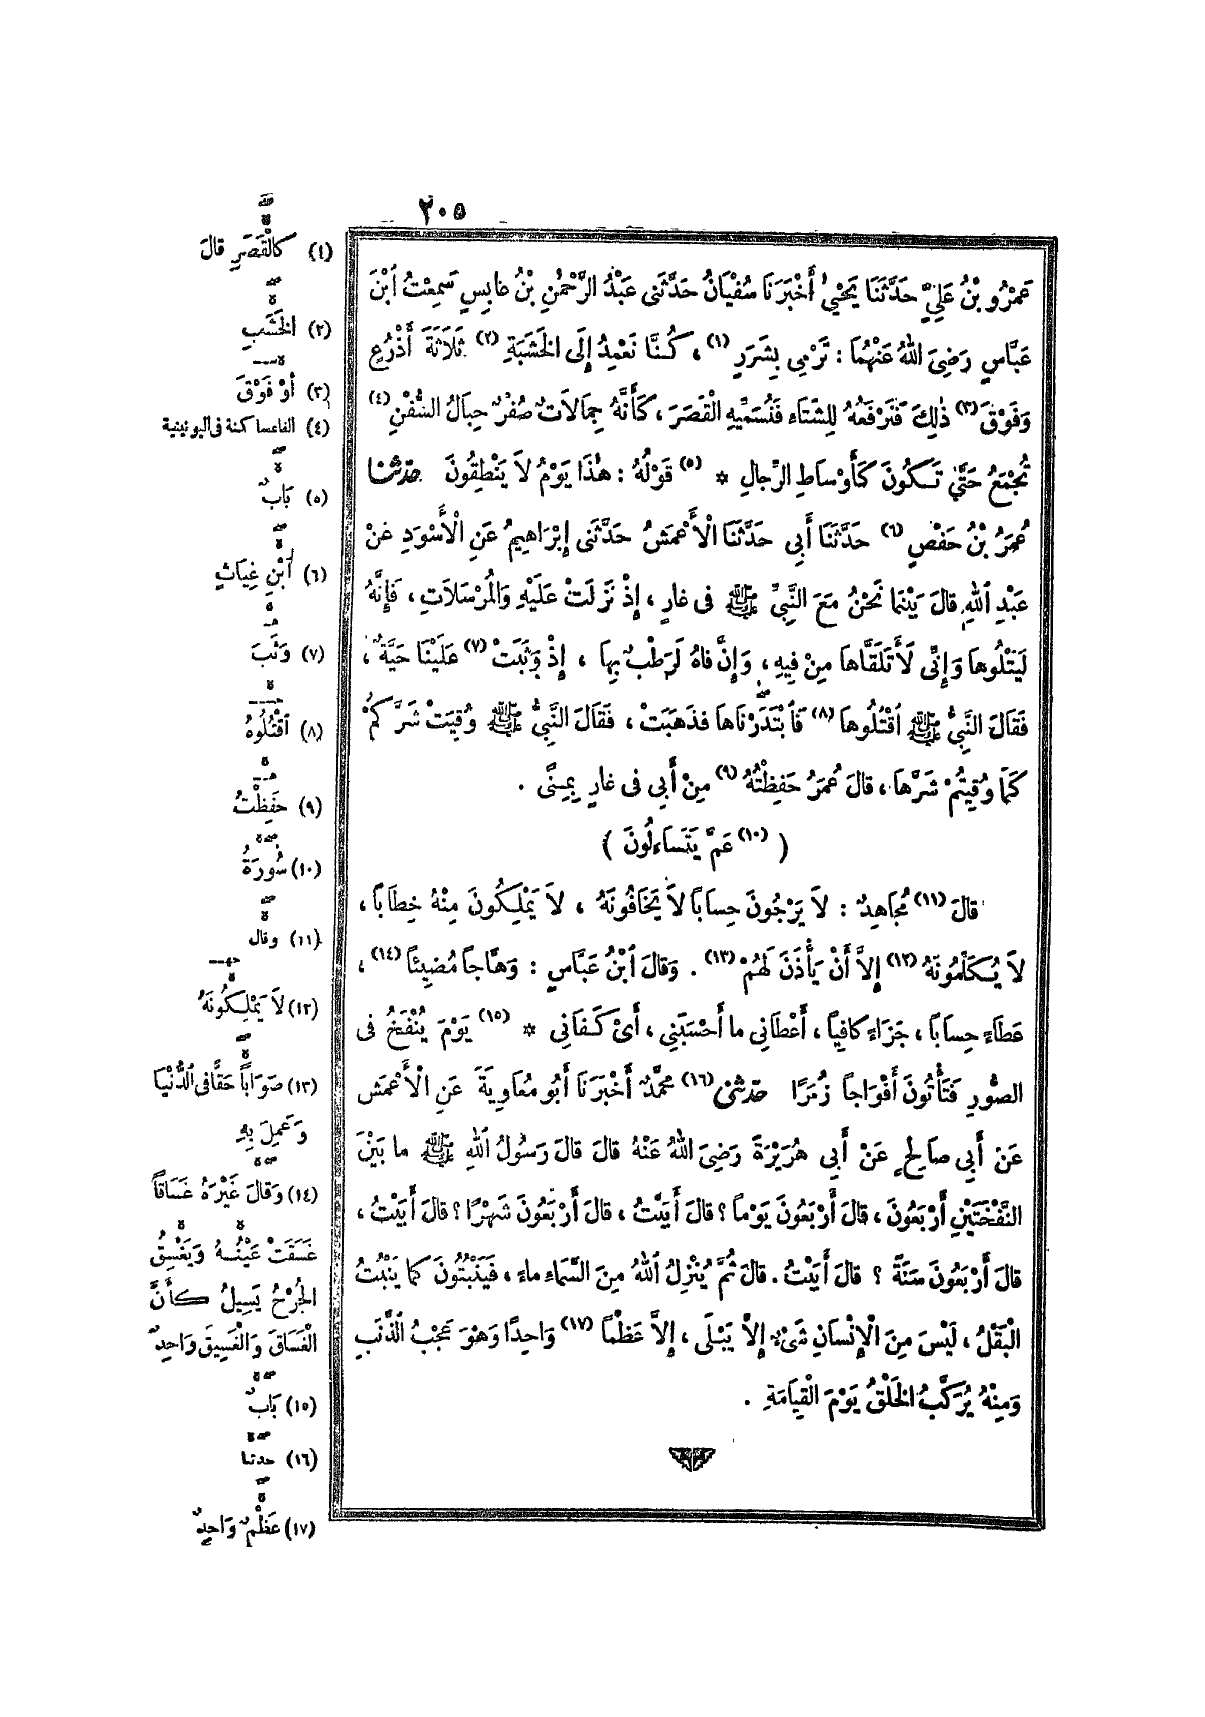 ٢٠٥
عَمْرُو بْنُ عَلِيٍّ حَدَّثَنَا يَحْيَىٰ أَخْبَرَنَا سُفْيَانُ حَدَّثَنِى عَبْدُ الرَّحْمٰنِ بْنُ عَابِسٍ سَمِعْتُ ٱبْنَ
عَبَّاسٍ رَضِىَ اللهُ عَنْهُمَا : تَرْمِى بِشَرَرٍ (١) ، كُنَّا نَعْمِدُ إِلَى الْخَشَبَةِ (٢) ثَلَاثَةَ أَذْرُعٍ
وَفَوْقَ (٣) ذٰلِكَ فَنَرْفَعُهُ لِلشِّتَاءِ فَنُسَمِّيهِ الْقَصَرَ ، كَأَنَّهُ جِمَالَاتٌ صُفْرٌ حِبَالُ السُّفْنِ (٤)
تُجْمَعُ حَتَّى تَكُونَ كَأَوْسَاطِ الرِّجَالِ * (٥) قَوْلُهُ : هٰذَا يَوْمُ لَا يَنْطِقُونَ حَدَّثَنَا
عُمَرُ بْنُ حَفْصٍ (٦) حَدَّثَنَا أَبِى حَدَّثَنَا الْأَعْمَشُ حَدَّثَنِى إِبْرَاهِيمُ عَنِ الْأَسْوَدِ عَنْ
عَبْدِ ٱللهِ قَالَ بَيْنَمَا نَحْنُ مَعَ النَّبِىِّ ﷺ فِى غَارٍ ، إِذْ نَزَلَتْ عَلَيْهِ وَالْمُرْسَلَاتِ ، فَإِنَّهُ
لَيَتْلُوهَا وَإِنِّى لَأَتَلَقَّاهَا مِنْ فِيهِ ، وَإِنَّ فَاهُ لَرَطْبٌ بِهَا ، إِذْ وَثَبَتْ (٧) عَلَيْنَا حَيَّةٌ ،
فَقَالَ النَّبِىُّ ﷺ ٱقْتُلُوهَا (٨) فَٱبْتَدَرْنَاهَا فَذَهَبَتْ ، فَقَالَ النَّبِىُّ ﷺ وُقِيَتْ شَرَّكُمْ
كَمَا وُقِيتُمْ شَرَّهَا ، قَالَ عُمَرُ حَفِظْتُهُ (٩) مِنْ أَبِى فِى غَارٍ بِمِنًى .
( (١٠) عَمَّ يَتَسَاءَلُونَ )
قَالَ (١١) مُجَاهِدٌ : لَا يَرْجُونَ حِسَابًا لَا يَخَافُونَهُ ، لَا يَمْلِكُونَ مِنْهُ خِطَابًا ،
لَا يُكَلِّمُونَهُ (١٢) إِلَّا أَنْ يَأْذَنَ لَهُمْ (١٣) . وَقَالَ ٱبْنُ عَبَّاسٍ : وَهَّاجًا مُضِيئًا (١٤) ،
عَطَاءً حِسَابًا ، جَزَاءً كَافِيًا ، أَعْطَانِى مَا أَحْسَبَنِى ، أَىْ كَفَانِى * (١٥) يَوْمَ يُنْفَخُ فِى
الصُّورِ فَتَأْتُونَ أَفْوَاجًا زُمَرًا حَدَّثَنِى (١٦) مُحَمَّدٌ أَخْبَرَنَا أَبُو مُعَاوِيَةَ عَنِ الْأَعْمَشِ
عَنْ أَبِى صَالِحٍ عَنْ أَبِى هُرَيْرَةَ رَضِىَ اللهُ عَنْهُ قَالَ قَالَ رَسُولُ ٱللهِ ﷺ مَا بَيْنَ
النَّفْخَتَيْنِ أَرْبَعُونَ ، قَالَ أَرْبَعُونَ يَوْمًا ؟ قَالَ أَبَيْتُ ، قَالَ أَرْبَعُونَ شَهْرًا ؟ قَالَ أَبَيْتُ ،
قَالَ أَرْبَعُونَ سَنَةً ؟ قَالَ أَبَيْتُ . قَالَ ثُمَّ يُنْزِلُ ٱللهُ مِنَ السَّمَاءِ مَاءً ، فَيَنْبُتُونَ كَمَا يَنْبُتُ
الْبَقْلُ ، لَيْسَ مِنَ الْإِنْسَانِ شَىْءٌ إِلَّا يَبْلَى ، إِلَّا عَظْمًا (١٧) وَاحِدًا وَهْوَ عَجْبُ الذَّنَبِ
وَمِنْهُ يُرَكَّبُ الْخَلْقُ يَوْمَ الْقِيَامَةِ .
(١) كَالْقَصَرِ قَالَ
(٢) الْخَشَبِ
(٣) أَوْ فَوْقَ
(٤) الفاء ساكنة فى اليونينية
(٥) بَابٌ
(٦) ٱبْنِ غِيَاثٍ
(٧) وَثَبَ
(٨) ٱقْتُلُوهُ
(٩) حَفِظْتُ
(١٠) سُورَةُ
(١١) وقال
(١٢) لَا يَمْلِكُونَهُ
(١٣) صَوَابًا حَقًّا فِى الدُّنْيَا
وَعَمِلَ بِهِ
(١٤) وَقَالَ غَيْرُهُ غَسَاقًا
غَسَقَتْ عَيْنُهُ وَيَغْسِقُ
الْجُرْحُ يَسِيلُ كَأَنَّ
الْغَسَاقَ وَالْغَسِيقَ وَاحِدٌ
(١٥) بَابٌ
(١٦) حدثنا
(١٧) عَظْمٌ وَاحِدٌ